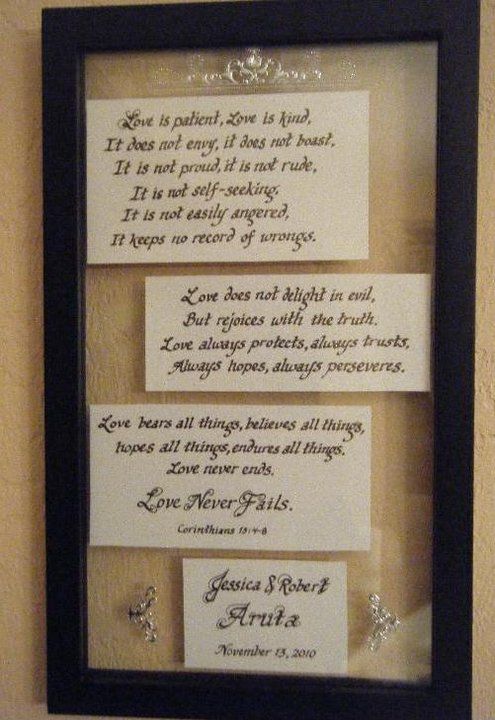 Love is patient, Love is kind,
It does not envy, it does not boast.
It is not proud, it is not rude,
It is not self-seeking,
It is not easily angered,
It keeps no record of wrongs.
Love does not delight in evil,
But rejoices with the truth.
Love always protects, always trusts,
Always hopes, always perseveres.
Love bears all things, believes all things,
hopes all things, endures all things.
Love never ends.
Love Never Fails.
Corinthians 13:4-8
Jessica & Robert
Aruta
November 13, 2010